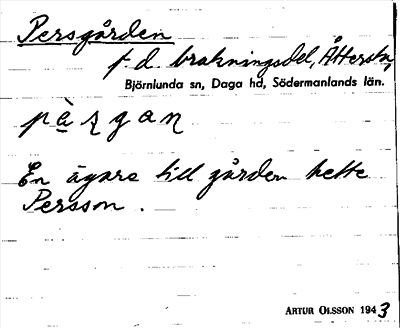 Persgården
f. d. brukningsdel, Åttersta,
Björnlunda sn, Daga hd, Södermanlands län.
pàʀgan
En ägare till gården hette
Persson.
ARTUR OLSSON 1943